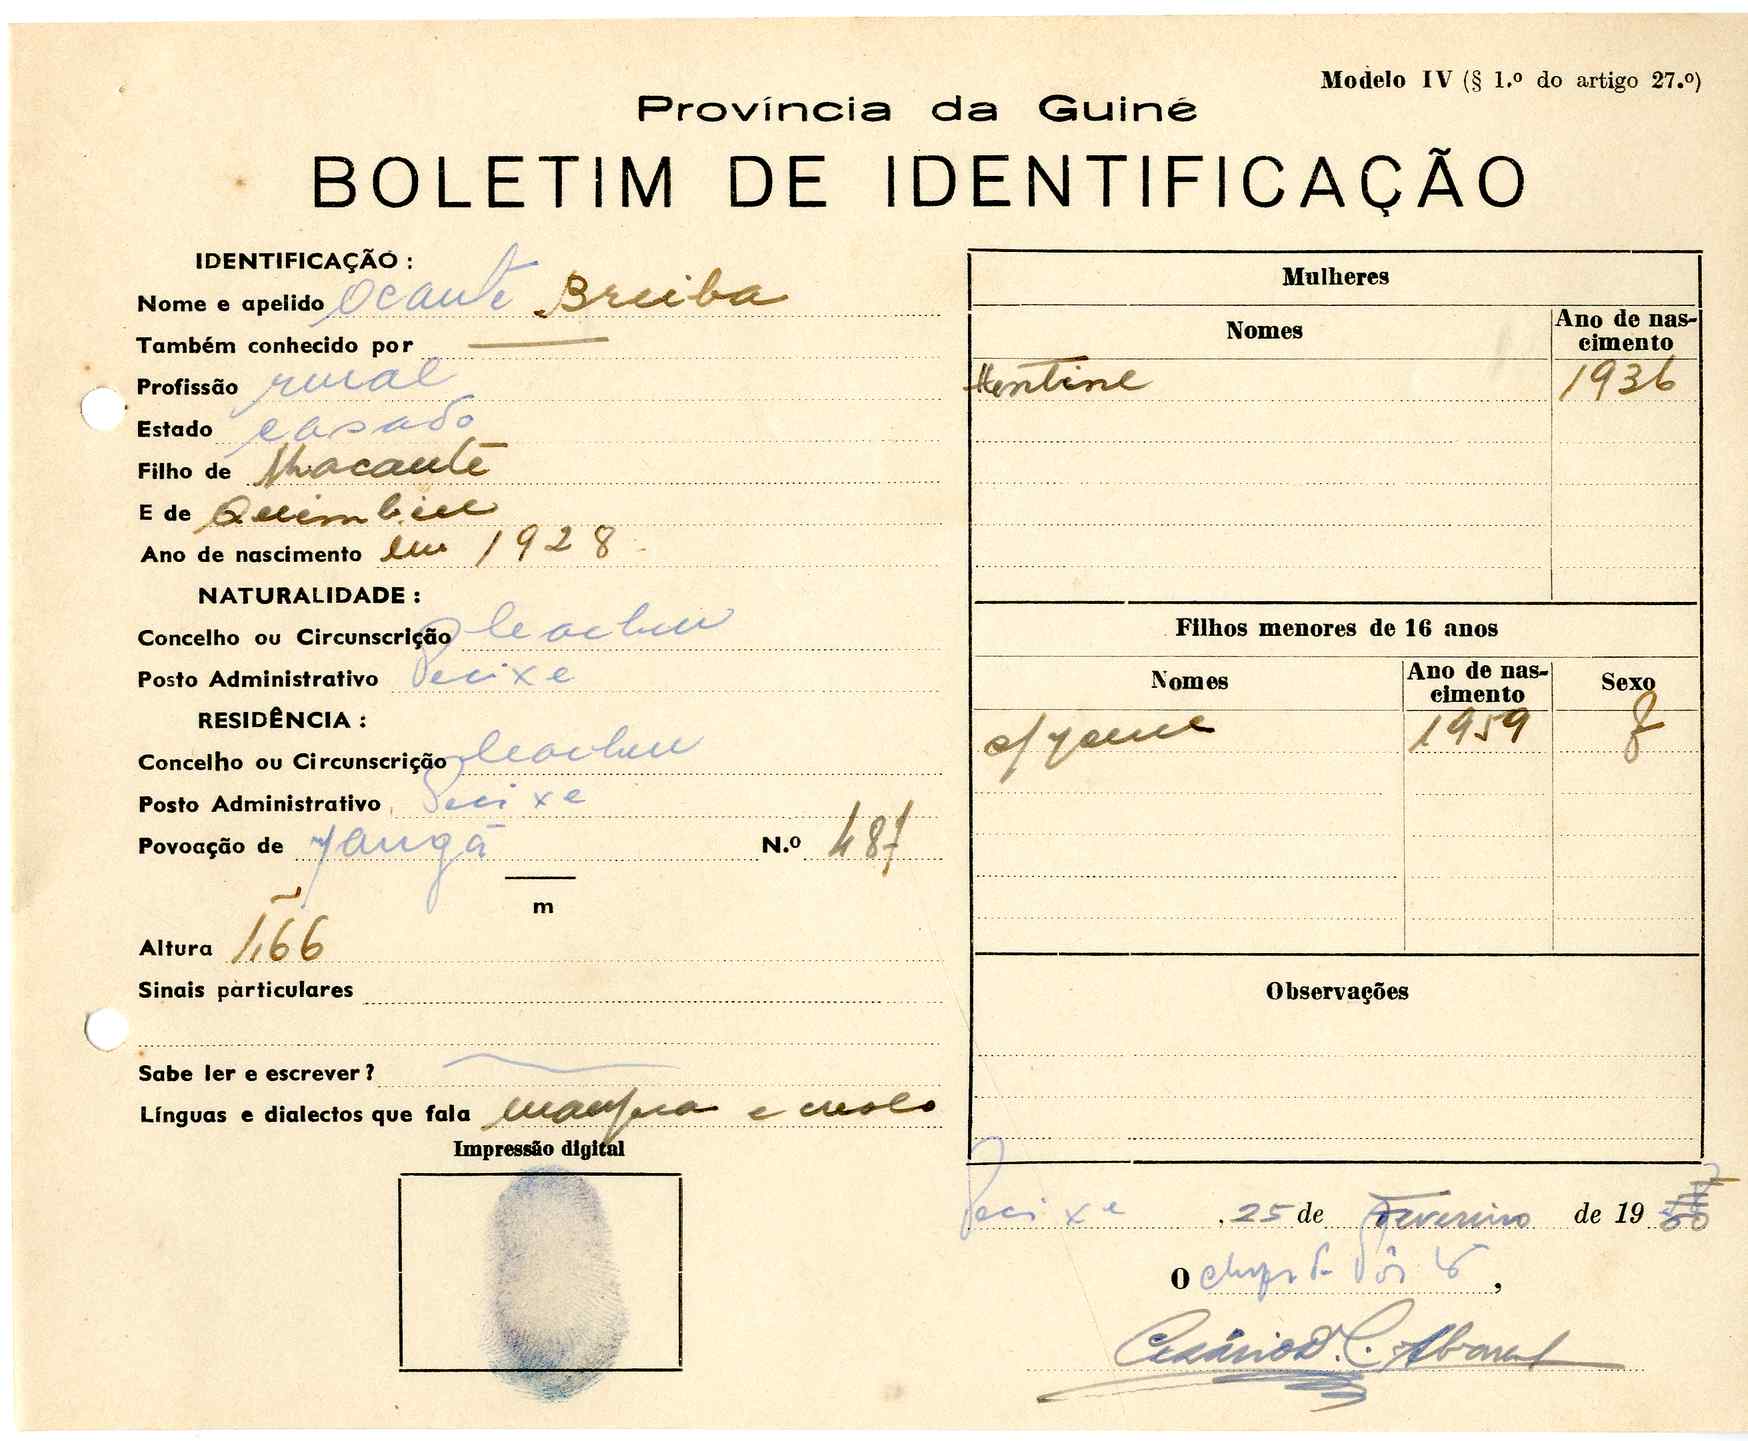 Modelo IV (§ 1.º do artigo 27.º)
Província da Guiné
BOLETIM DE IDENTIFICAÇÃO
IDENTIFICAÇÃO :
Nome e apelido Ocante Breiba
Também conhecido por
Profissão rural
Estado casado
Filho de
E de
Ano de nascimento em 1928
NATURALIDADE :
Concelho ou Circunscrição
Posto Administrativo Pecixe
RESIDÊNCIA :
Concelho ou Circunscrição
Posto Administrativo Pecixe
Povoação de N.º 487
m
Altura 1,66
Sinais particulares
Sabe ler e escrever ?
Línguas e dialectos que fala e creolo
Impressão digital
Mulheres
Nomes Ano de nascimento
1936
Filhos menores de 16 anos
Nomes Ano de nascimento Sexo
1959 f
Observações
Pecixe, 25 de Fevereiro de 19
O
Cesário D. C.